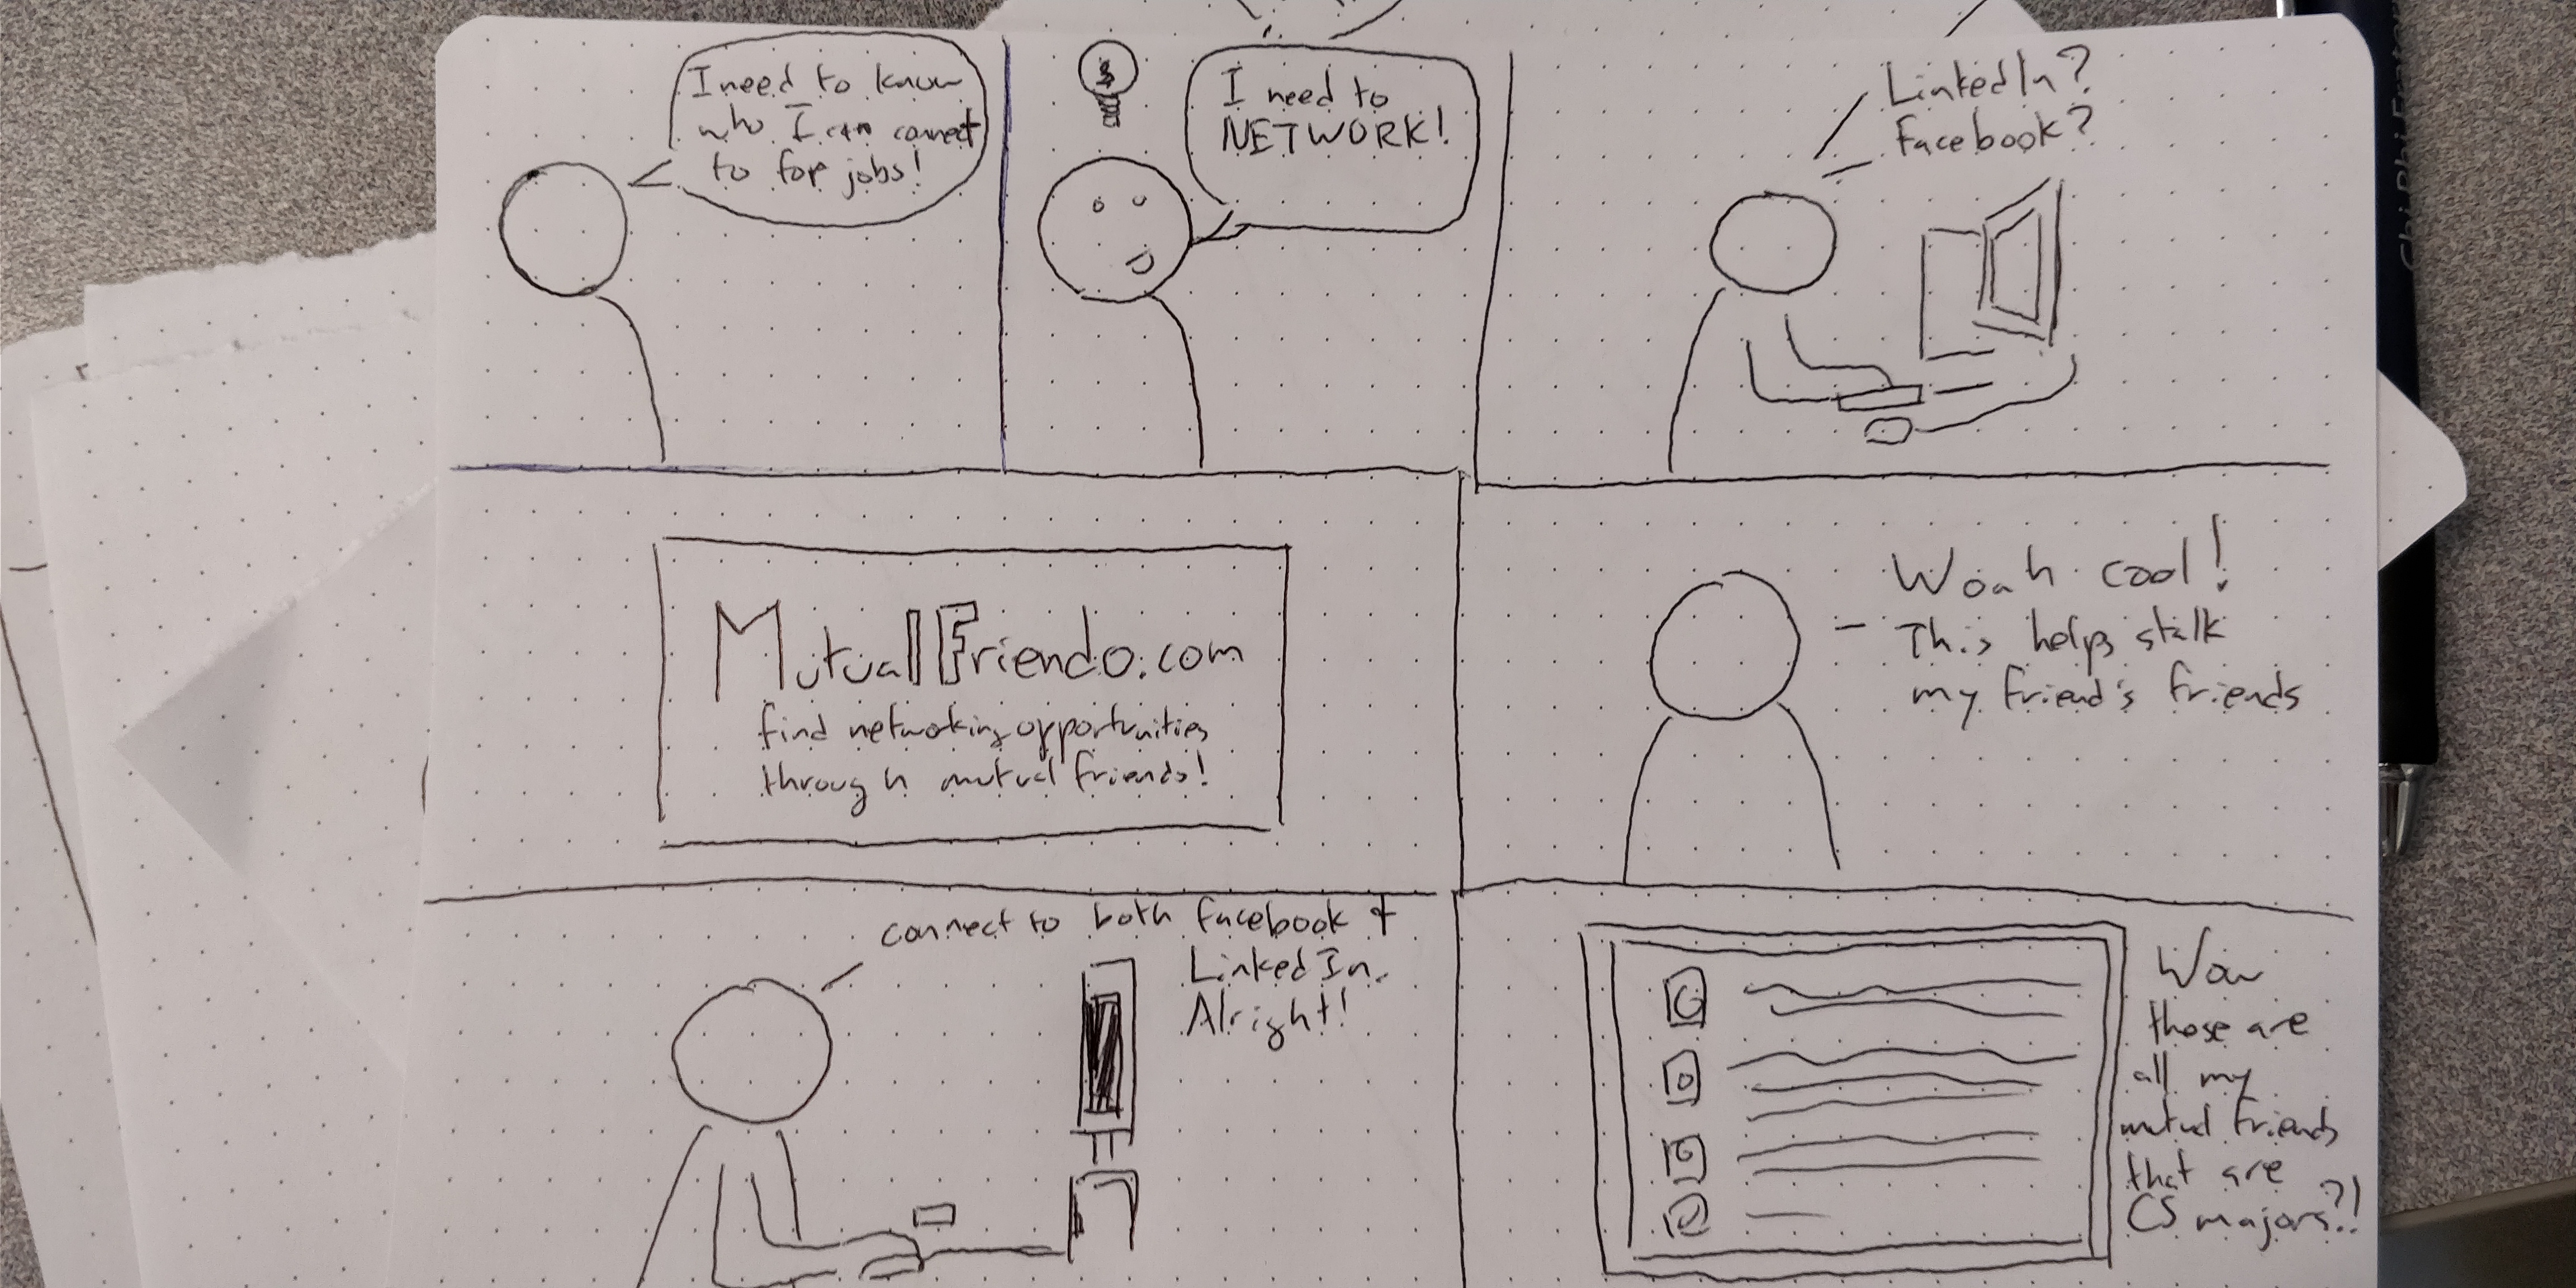 I need to know
who I can connect
to for jobs!
$
I need to
NETWORK!
LinkedIn?
Facebook?
MutualFriendo.com
find networking opportunities
through mutual friends!
Woah cool!
This helps stalk
my friend's friends
connect to both facebook &
LinkedIn.
Alright!
Wow
those are
all my
mutual friends
that are
CS majors?!
Chi Phi Frater